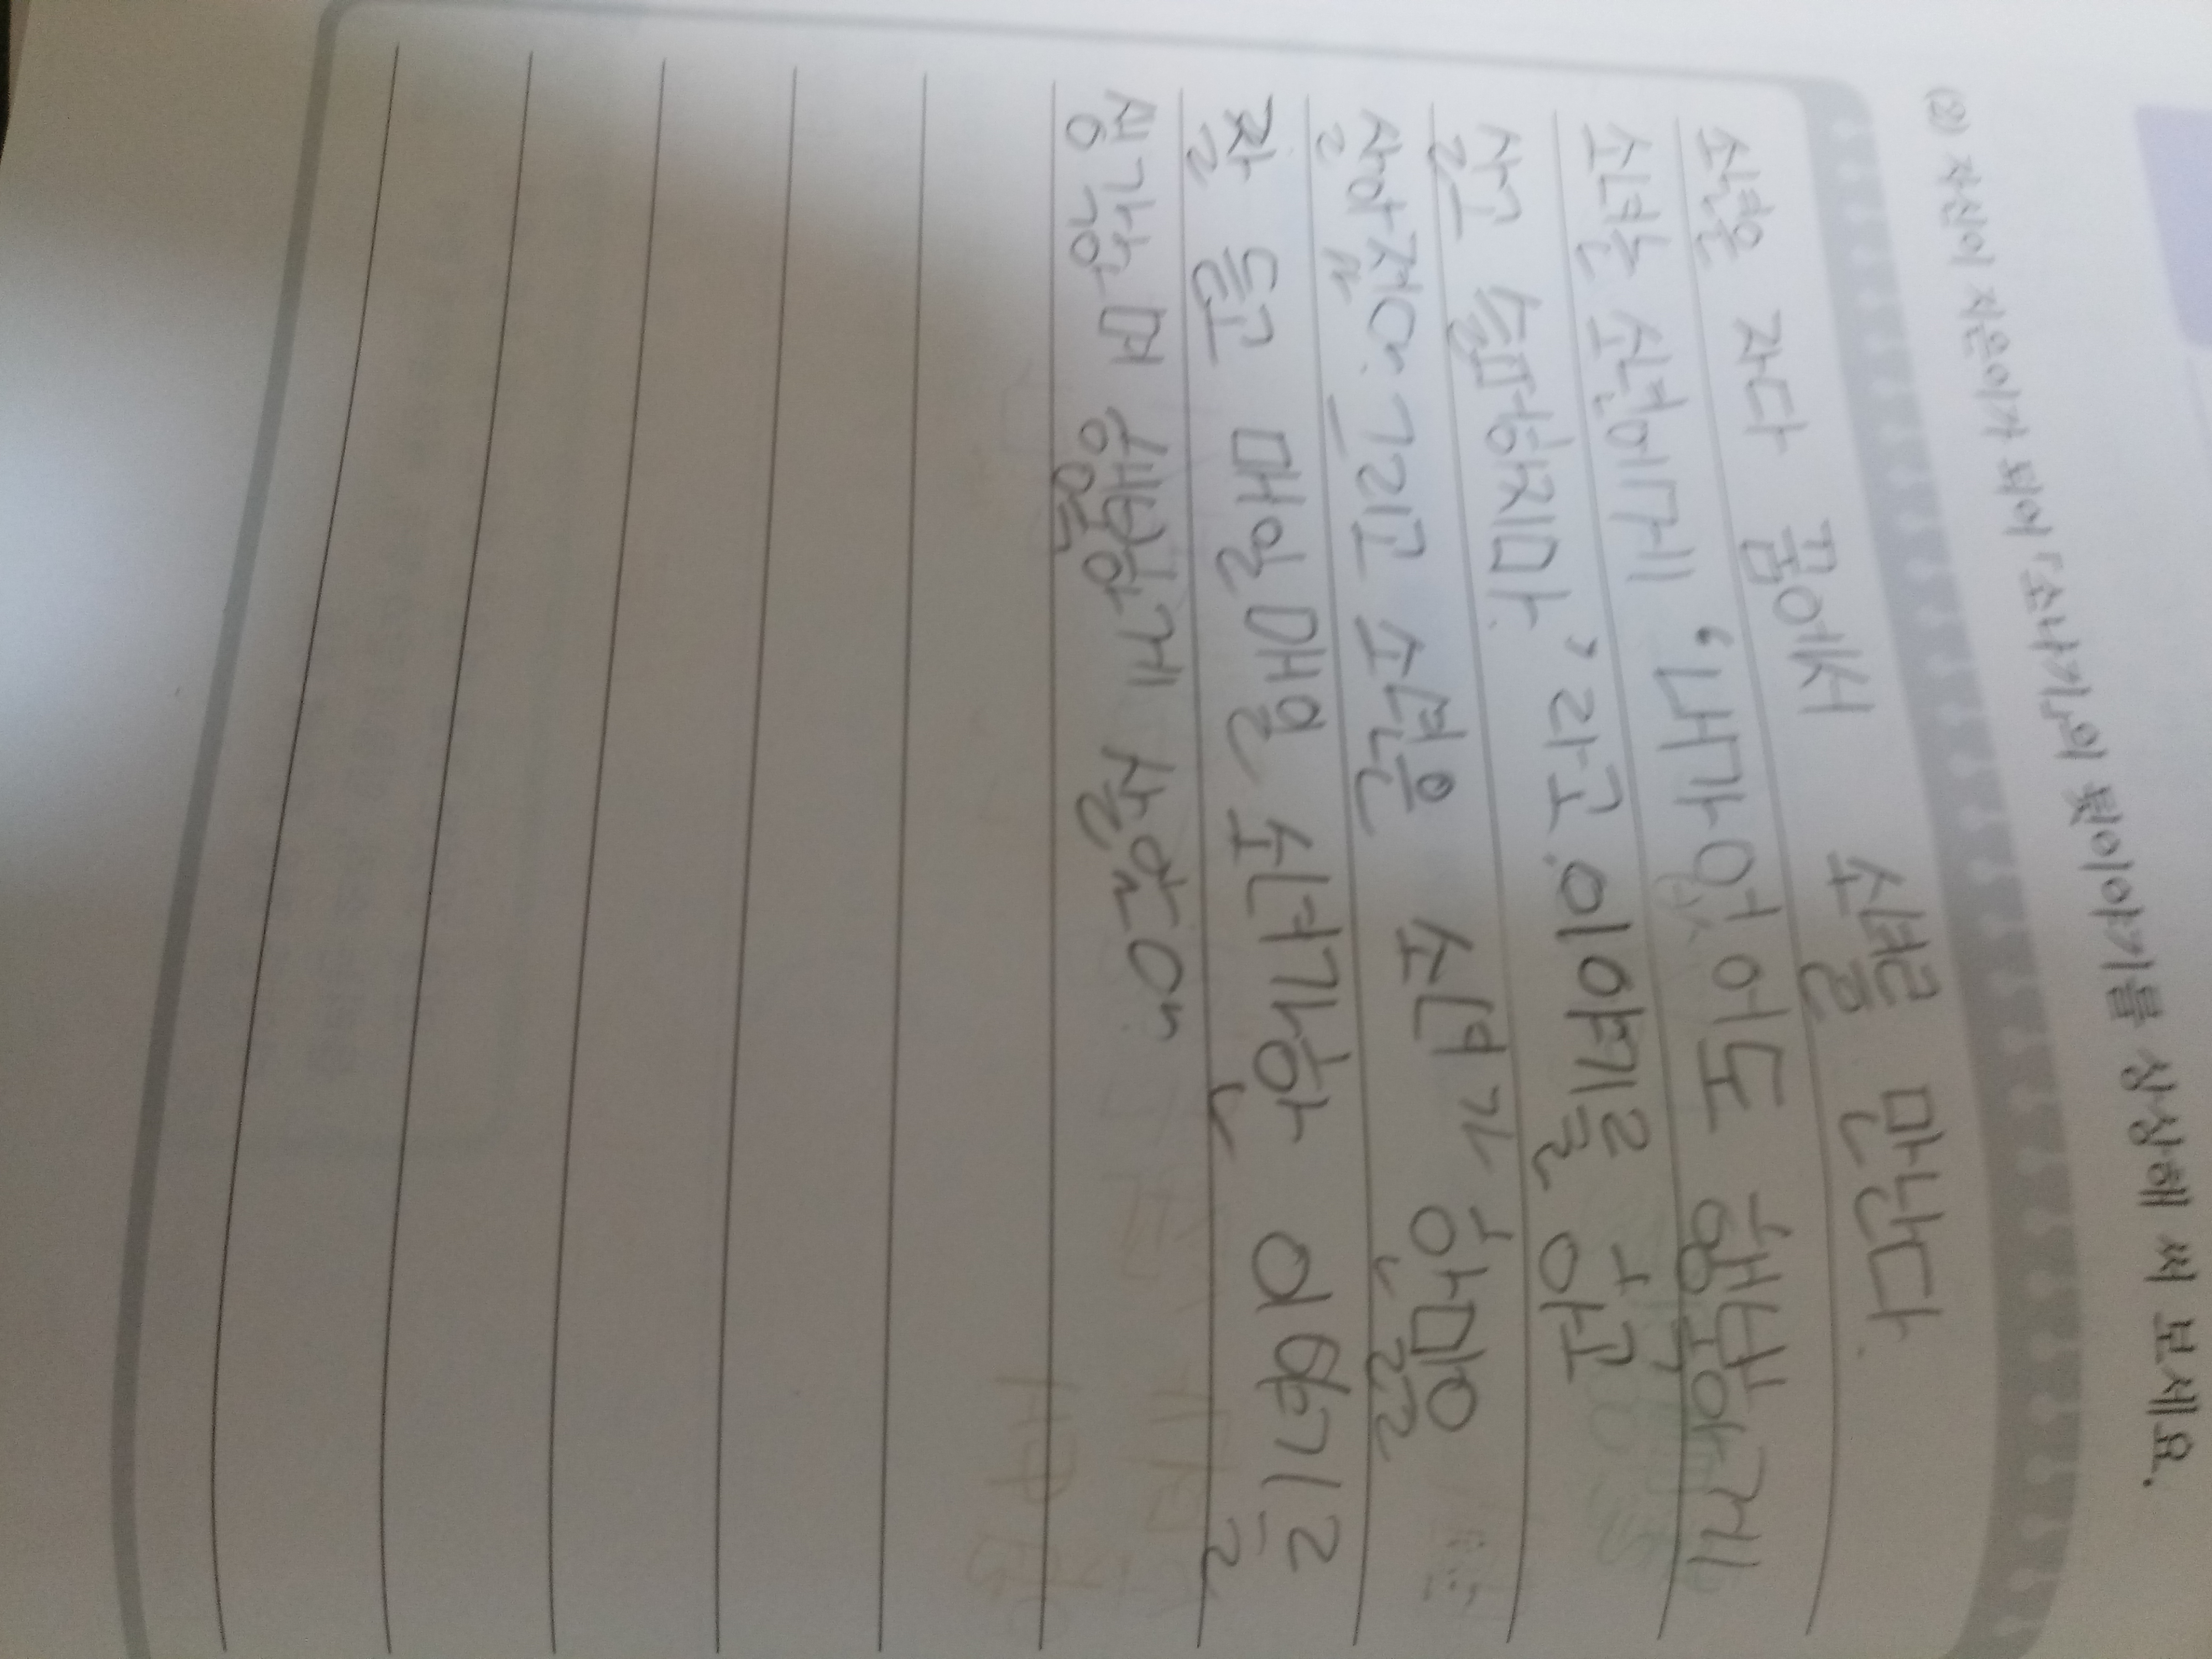 (2) 자신이 지은이가 되어 「소나기」의 뒷이야기를 상상해 써 보세요.
소년은 자다 꿈에서 소녀를 만난다.
소녀는 소년에게 '내가 없어도 행복하게
살고 슬퍼하지마.'라고 이야기를 하고
사라졌어. 그리고 소년은 소녀가 한 말을
잘 듣고 매일매일 소녀가 한 이야기를
생각하며 행복하게 살았어.